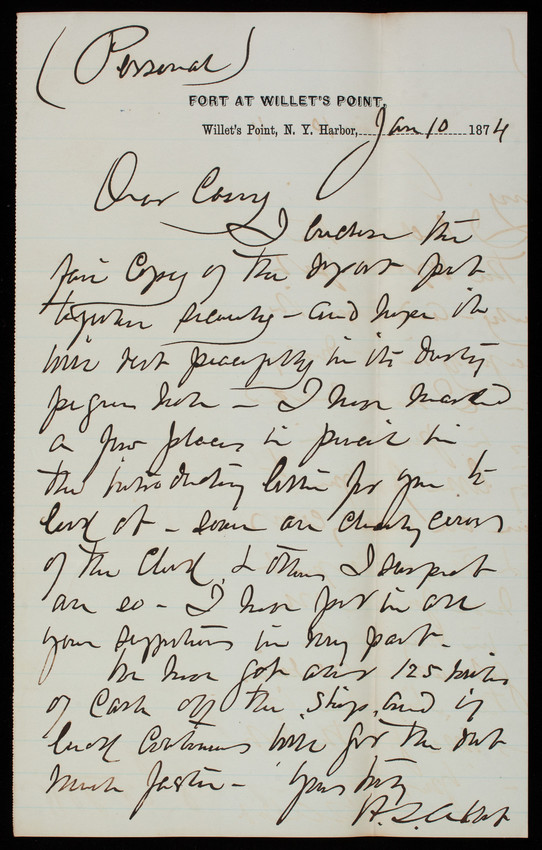 (Personal)
FORT AT WILLET'S POINT,
Willet's Point, N. Y. Harbor, Jan 10 1874
Dear Casey
I enclose the
fair copy of the report put
together securely - and hope it
will rest peacefully in its dusty
pigeon hole - I have marked
a few places in pencil in
the introductory letter for you to
look at - some are clearly errors
of the clerk, & others I suspect
are so - I have put in all
your suggestions in my part.
We have got over 125
of cask off the ship, and if
luck continues will get the rest
much faster - Yours truly
H. L. Abbot